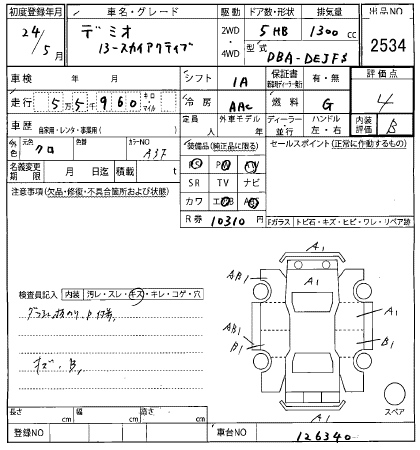 初度登録年月 車名・グレード 駆動 ドア数・形状 排気量 出品NO
24年 5月 デミオ 13-スカイアクティブ 2WD・4WD 5HB 1300cc 2534
型式 DBA-DEJFS
車検 年 月 シフト IA 保証書 有・無 評価点 4
走行 5万5千960 キロ・マイル 冷房 AAC 燃料 G
車歴 自家用・レンタ・事業用( ) 定員 人 外車モデル 年 ディーラー・並行 ハンドル 左・右 内装評価 B
外色 元色 クロ 色替 カラーNO A3F 装備品(純正品に限る) セールスポイント(正常に作動するもの)
名義変更期限 月 日迄 積載 t PS PW AW
注意事項(欠品・修復・不具合箇所および状態) SR TV ナビ
カワ エアB ABS
R券 10310円 Fガラス トビ石・キズ・ヒビ・ワレ・リペア跡
検査員記入 内装 汚レ・スレ・キズ・キレ・コゲ・穴
キズ・B1
A1
A1
AB1
A1
AB1
B1
B1
A1
スペア
長さ cm 幅 cm 高さ cm
登録NO 車台NO 126340